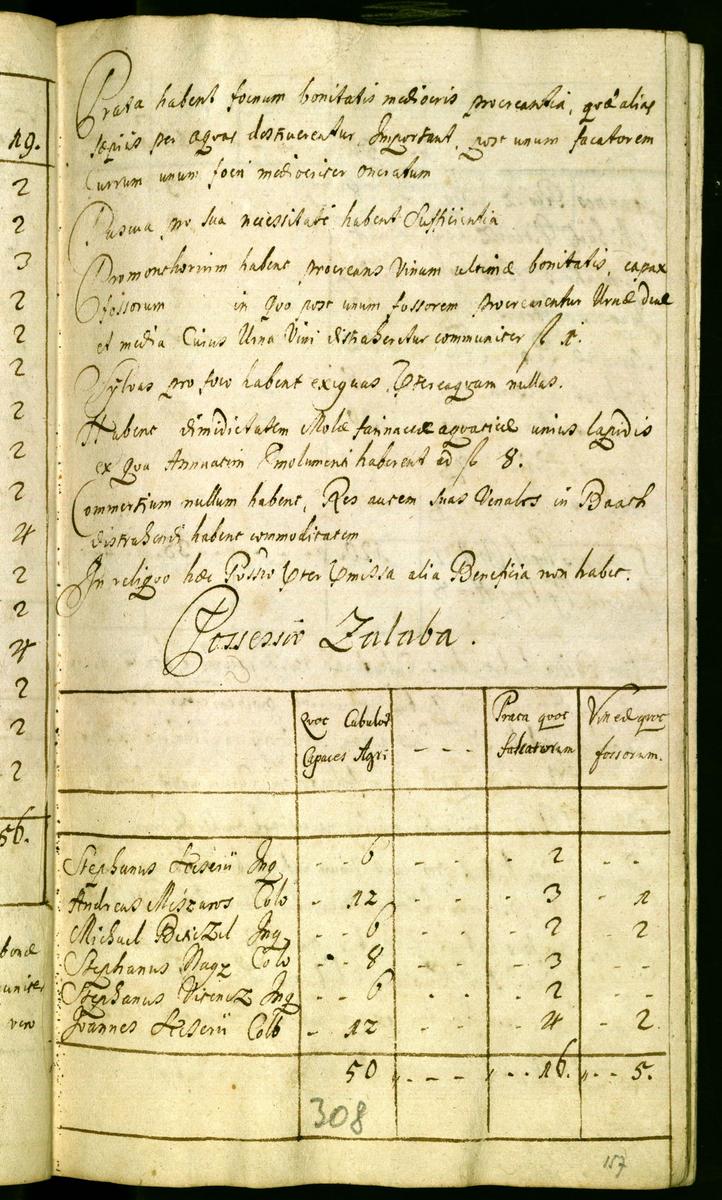 19.
2
2
3
2
2
2
2
2
2
4
2
2
4
2
2
2
56.
Prata habent foenum bonitatis mediocris procreantia, quae alias
saepius per aquas destruerentur, Important, post unum facatorem
Currum unum foeni mediocriter oneratum
Pascua pro sua necessitate habent Sufficientia
Promonthorium habent procreans Vinum ultimae bonitatis, capax
fossorum in quo post unum fossorem procrearentur Urnae duae
et media Cuius Urna Vini distraheretur communiter fl 1.
Sylvas pro foco habent exiguas, Ptereaquam nullas.
Habent dimidietatem Molae farinaceae aquaticae unius lapidis
ex qua Annuatim Emolumenti haberent ad fl 8.
Commertium nullum habent, Res autem suas Venales in Baath
distrahendi habent commoditatem
In reliquo haec Possio Pter Pmissa alia Beneficia non habet.
Possessio Zalaba.
Quot Cubulos Capaces Agri
Prata quot falcatorum
Vineae quot fossorum.
Stephanus Inq - - 6 - - - - 2 - -
Andreas Meszaros Colo - 12 - - - 3 - 1
Michael Inq - - 6 - - - - 2 - 2
Stephanus Nagy Colo - 8 - - - 3 - -
Stephanus Vitenez Inq - - 6 - - - 2 - -
Joannes Colo - 12 - - - 4 - 2
50 - - - - - 16. - - 5.
308
157